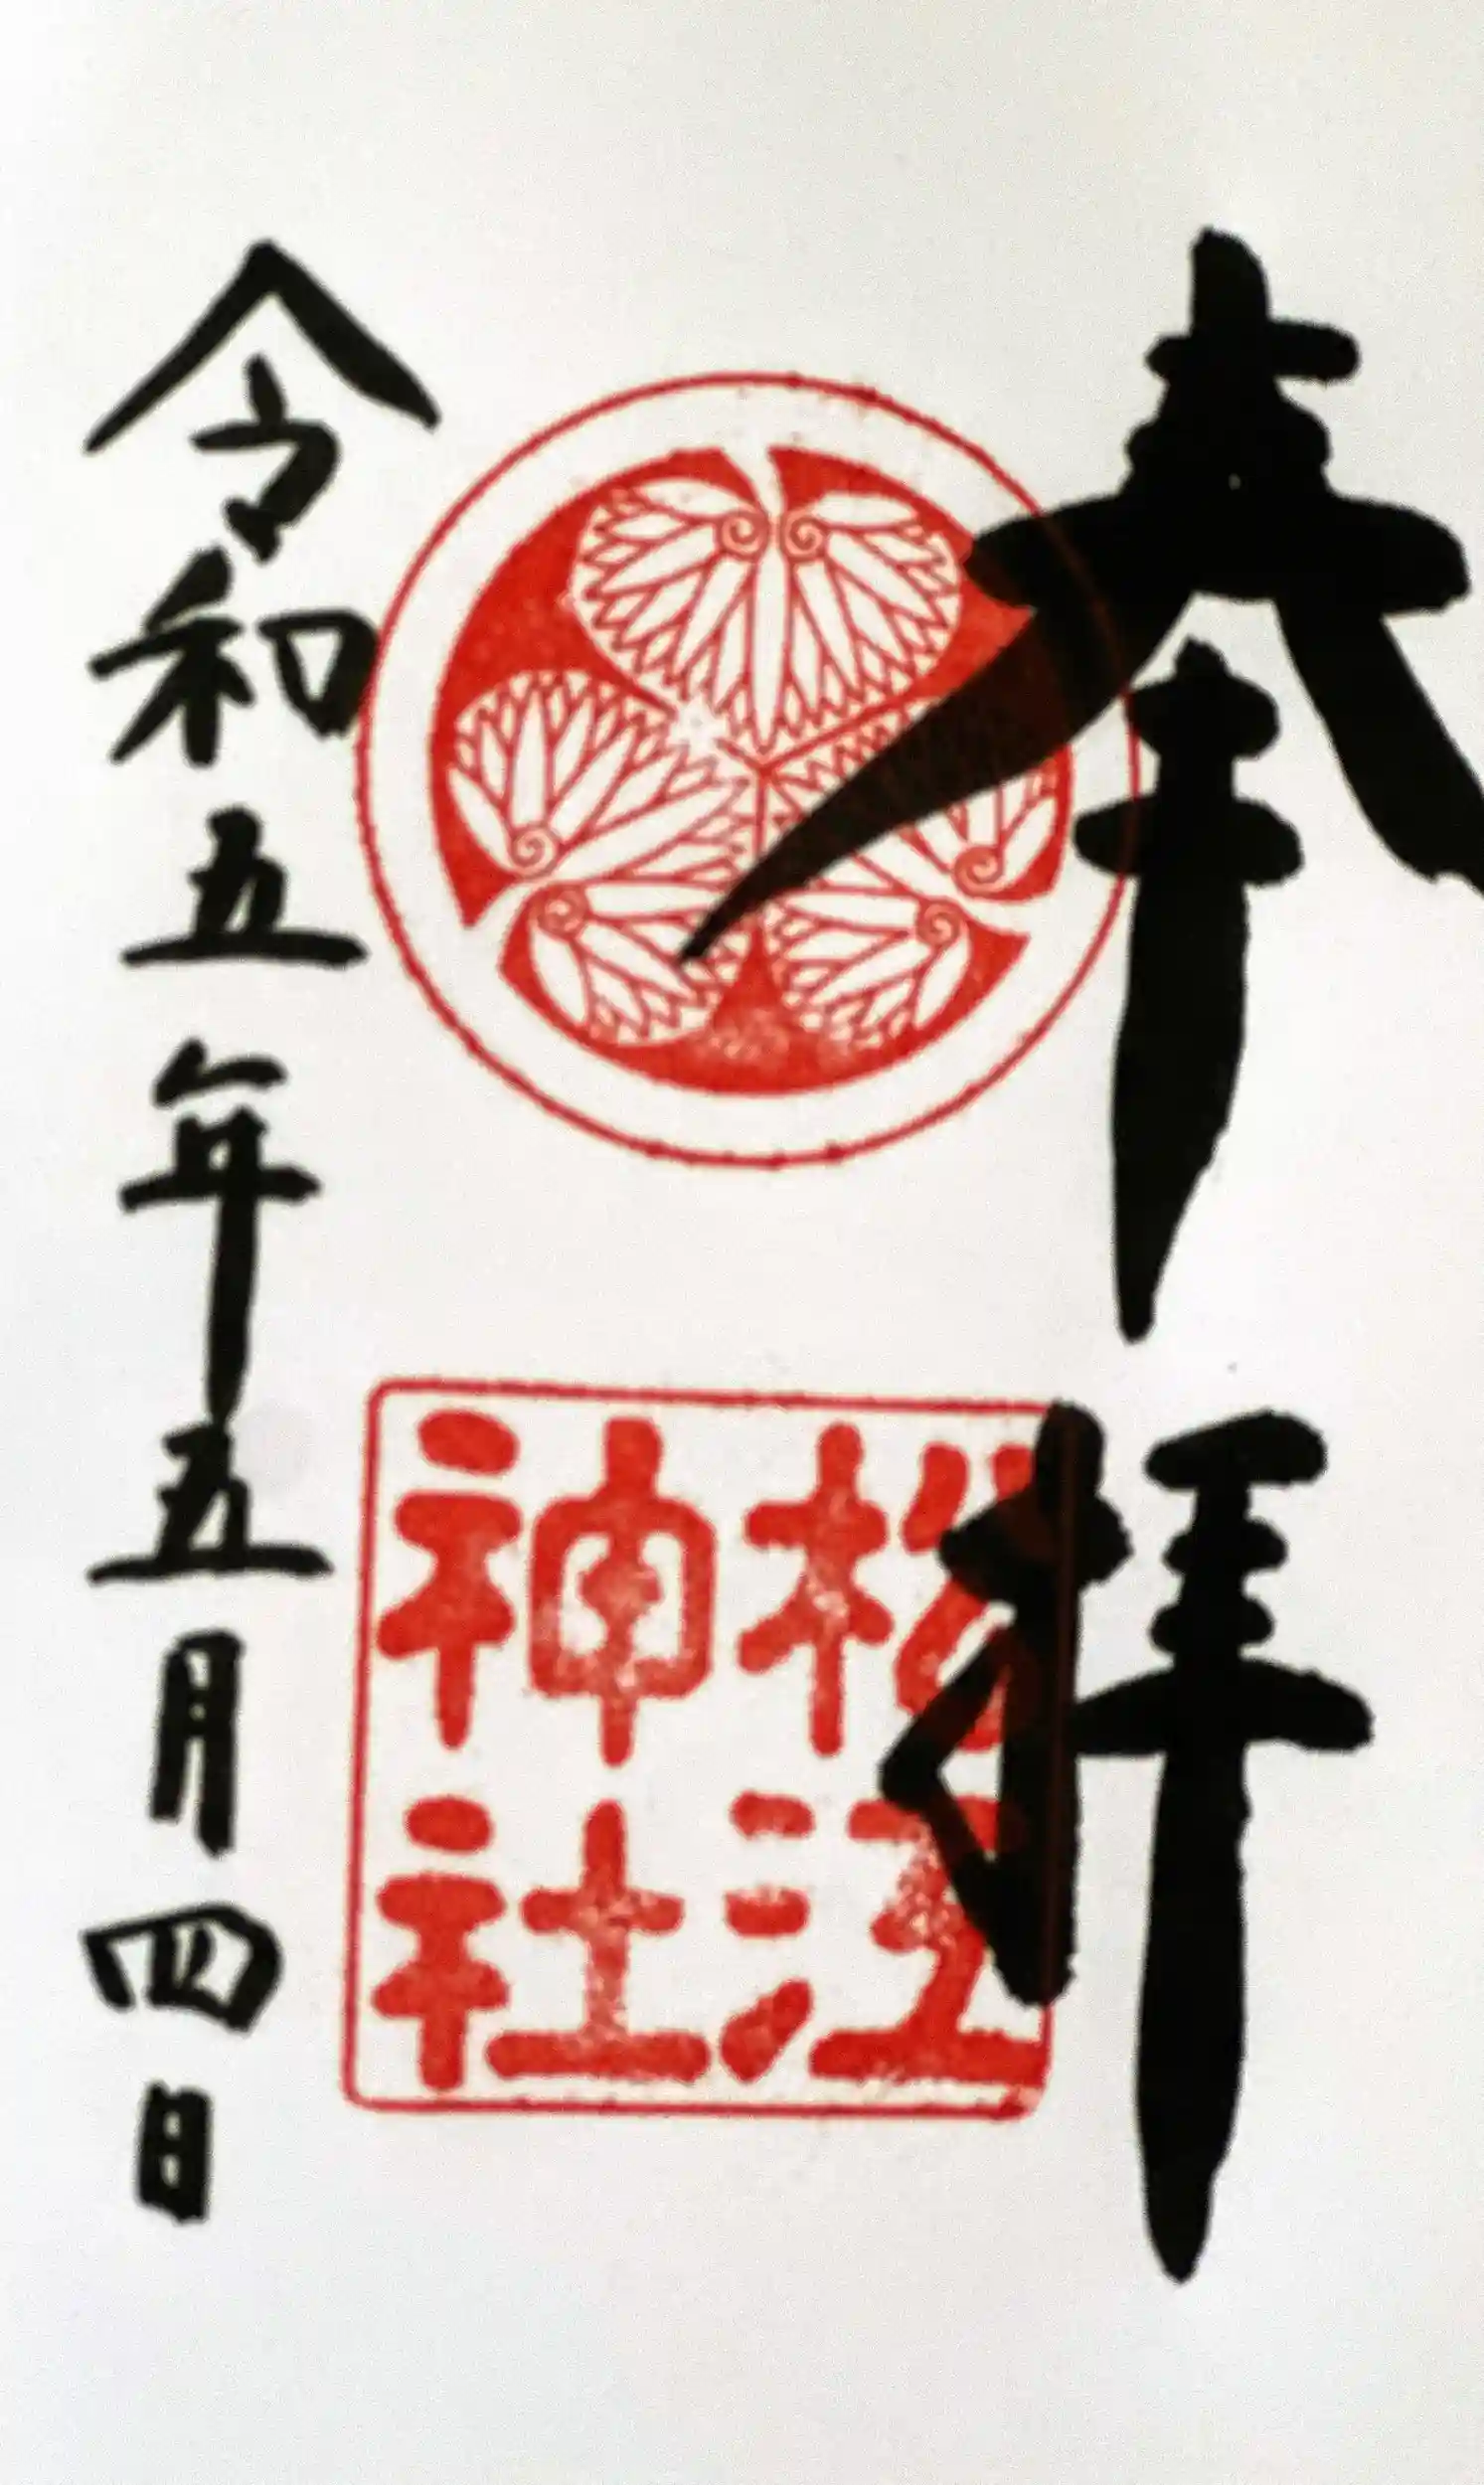 奉拝
松江
神社
令和五年五月四日